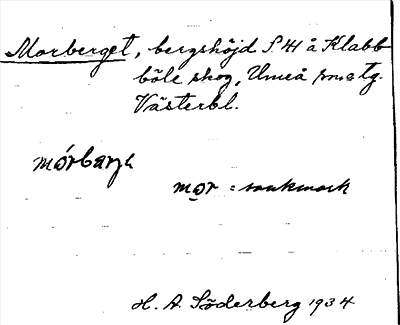 Morberget, bergshöjd S H å Klabb-
böle skog, Umeå
Västerbl.
mórbarjə
mor = sankmark
H. A. Söderberg 1934